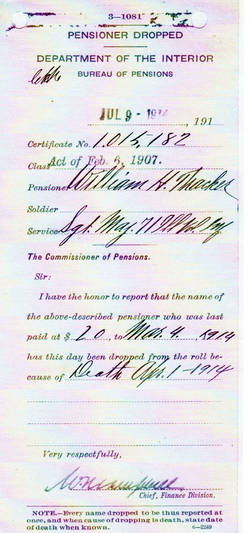 3—1081
PENSIONER DROPPED
DEPARTMENT OF THE INTERIOR
BUREAU OF PENSIONS
JUL 9 - 1914 , 191
Certificate No. 1,015,182
Class Act of Feb. 6, 1907.
Pensioner William H. Thacker
Soldier
Service Sgt. Maj. 71
The Commissioner of Pensions.
Sir:
I have the honor to report that the name of
the above-described pensioner who was last
paid at $ 20, to Mar. 4, 1914
has this day been dropped from the roll be-
cause of Death Apr. 1-1914
Very respectfully,
Chief, Finance Division.
NOTE.—Every name dropped to be thus reported at
once, and when cause of dropping is death, state date
of death when known.
6—2249